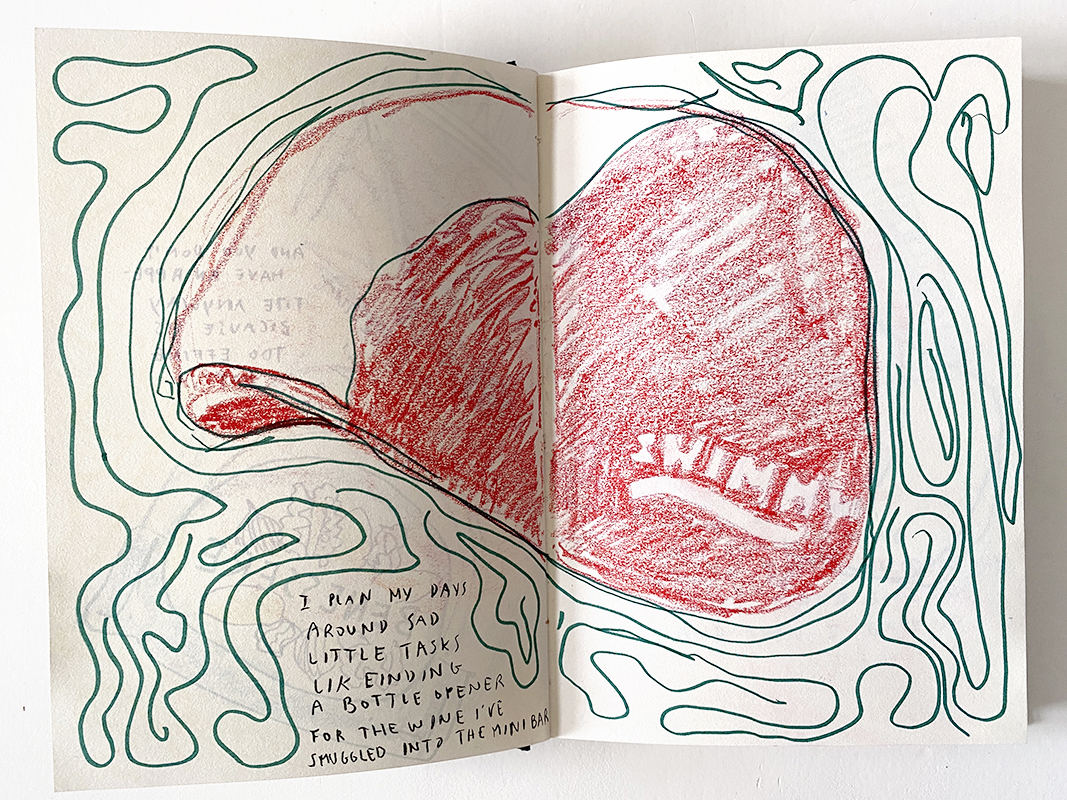 SWIMMY
I PLAN MY DAYS
AROUND SAD
LITTLE TASKS
LIK EINDING
A BOTTLE OPENER
FOR THE WINE I'VE
SMUGGLED INTO THE MINIBAR